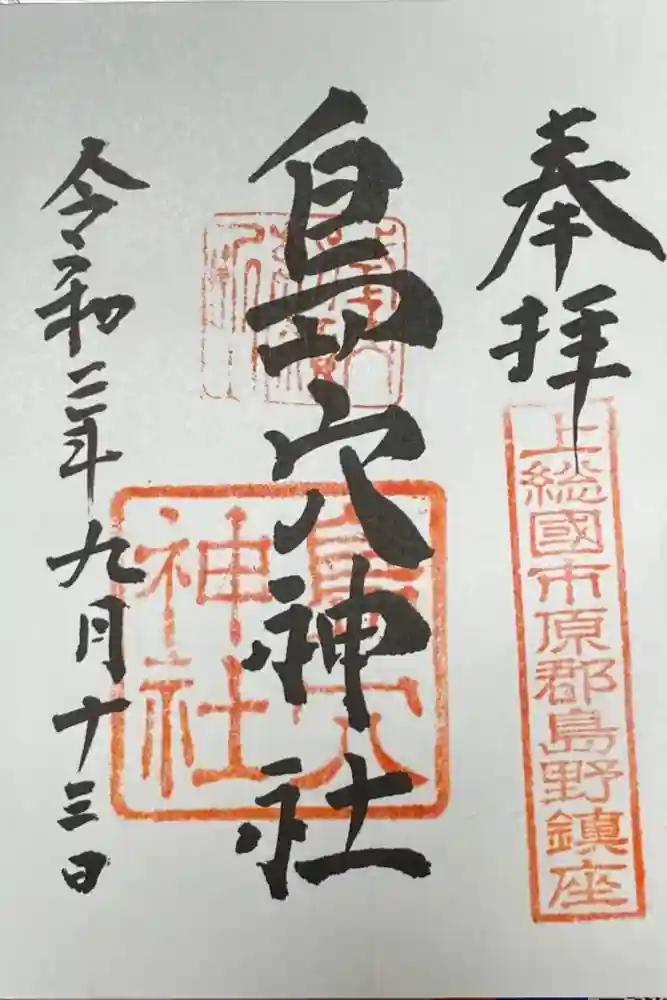 奉拝
上総國市原郡島野鎮座
島穴神社
島穴神社
令和二年九月十三日